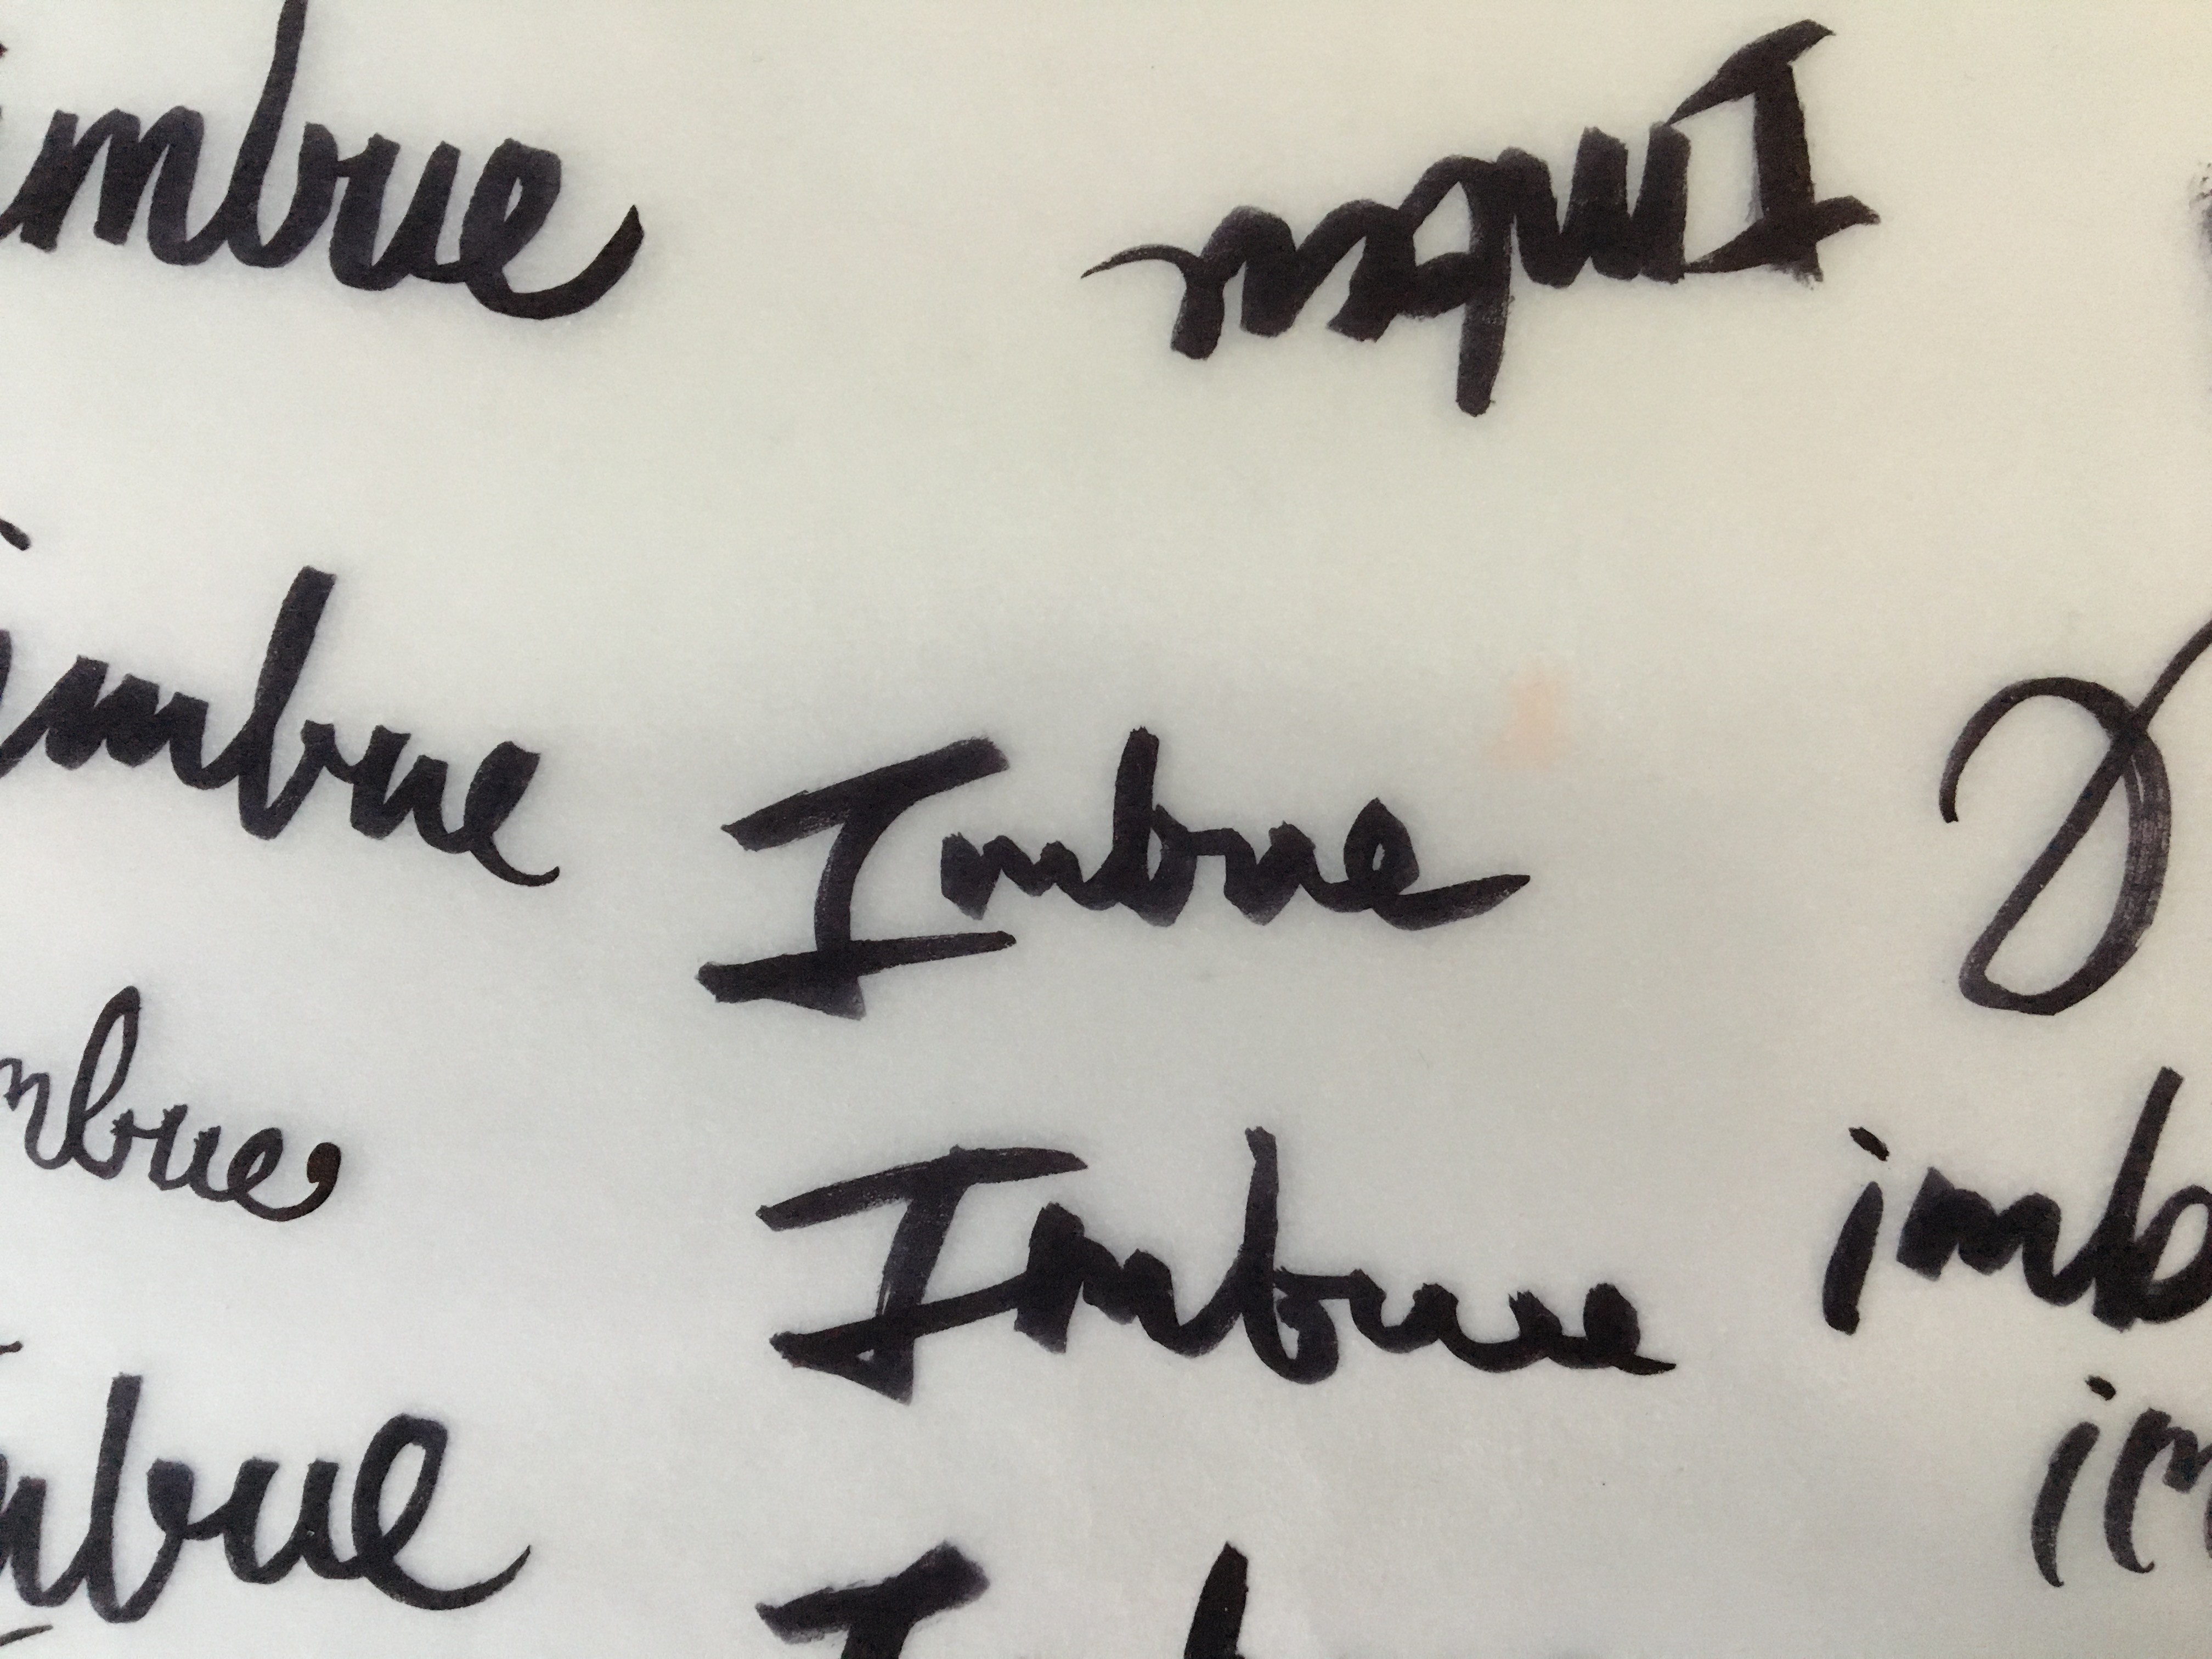 imbue
Imbue
imbue
Imbue
mbue
Imbue
imb
mbue
im